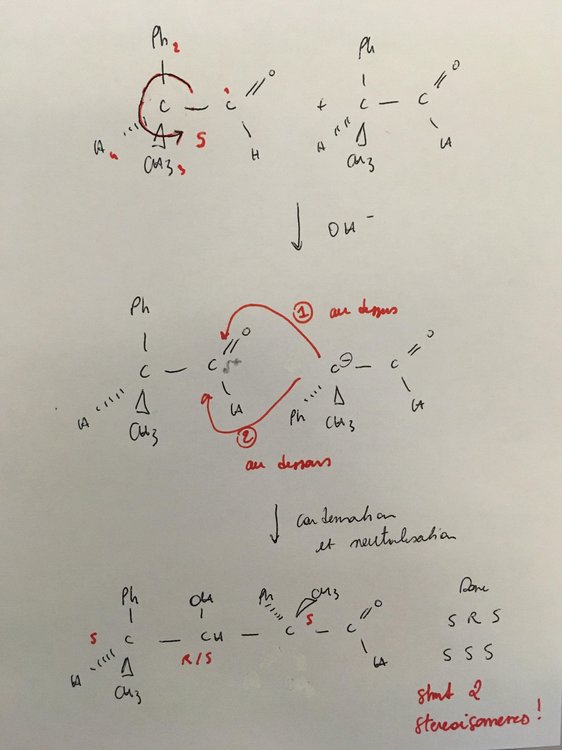 Ph 2
Ph
O
O
C
C
+
C
C
H 4
CH3 3
S
H
H
CH3
H
OH⁻
Ph
① au dessus
O
O
C
C
C⊖
C
H
CH3
H
Ph
CH3
H
②
au dessous
condensation
et neutralisation
Ph
OH
Ph
CH3
Donc
S
C
CH
C
S
C
O
S R S
H
CH3
R/S
H
S S S
2
stereoisomeres !